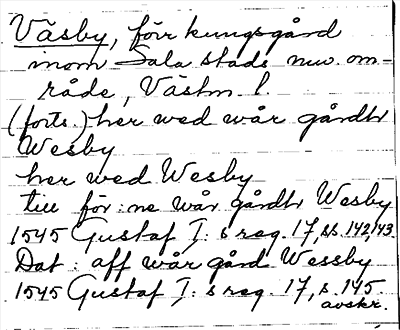 Väsby, förr kungsgård
inom Sala stads nuv. om-
råde, Västm. l.
(forts.) her wed wår gårdh
Wesby
her wed Wesby
till för:ne wår gårdh Wesby
1545 Gustaf I:s reg. 17, ss. 142, 143.
Dat: aff wår gård Wessby
1545 Gustaf I:s reg. 17, s. 145.
avskr.